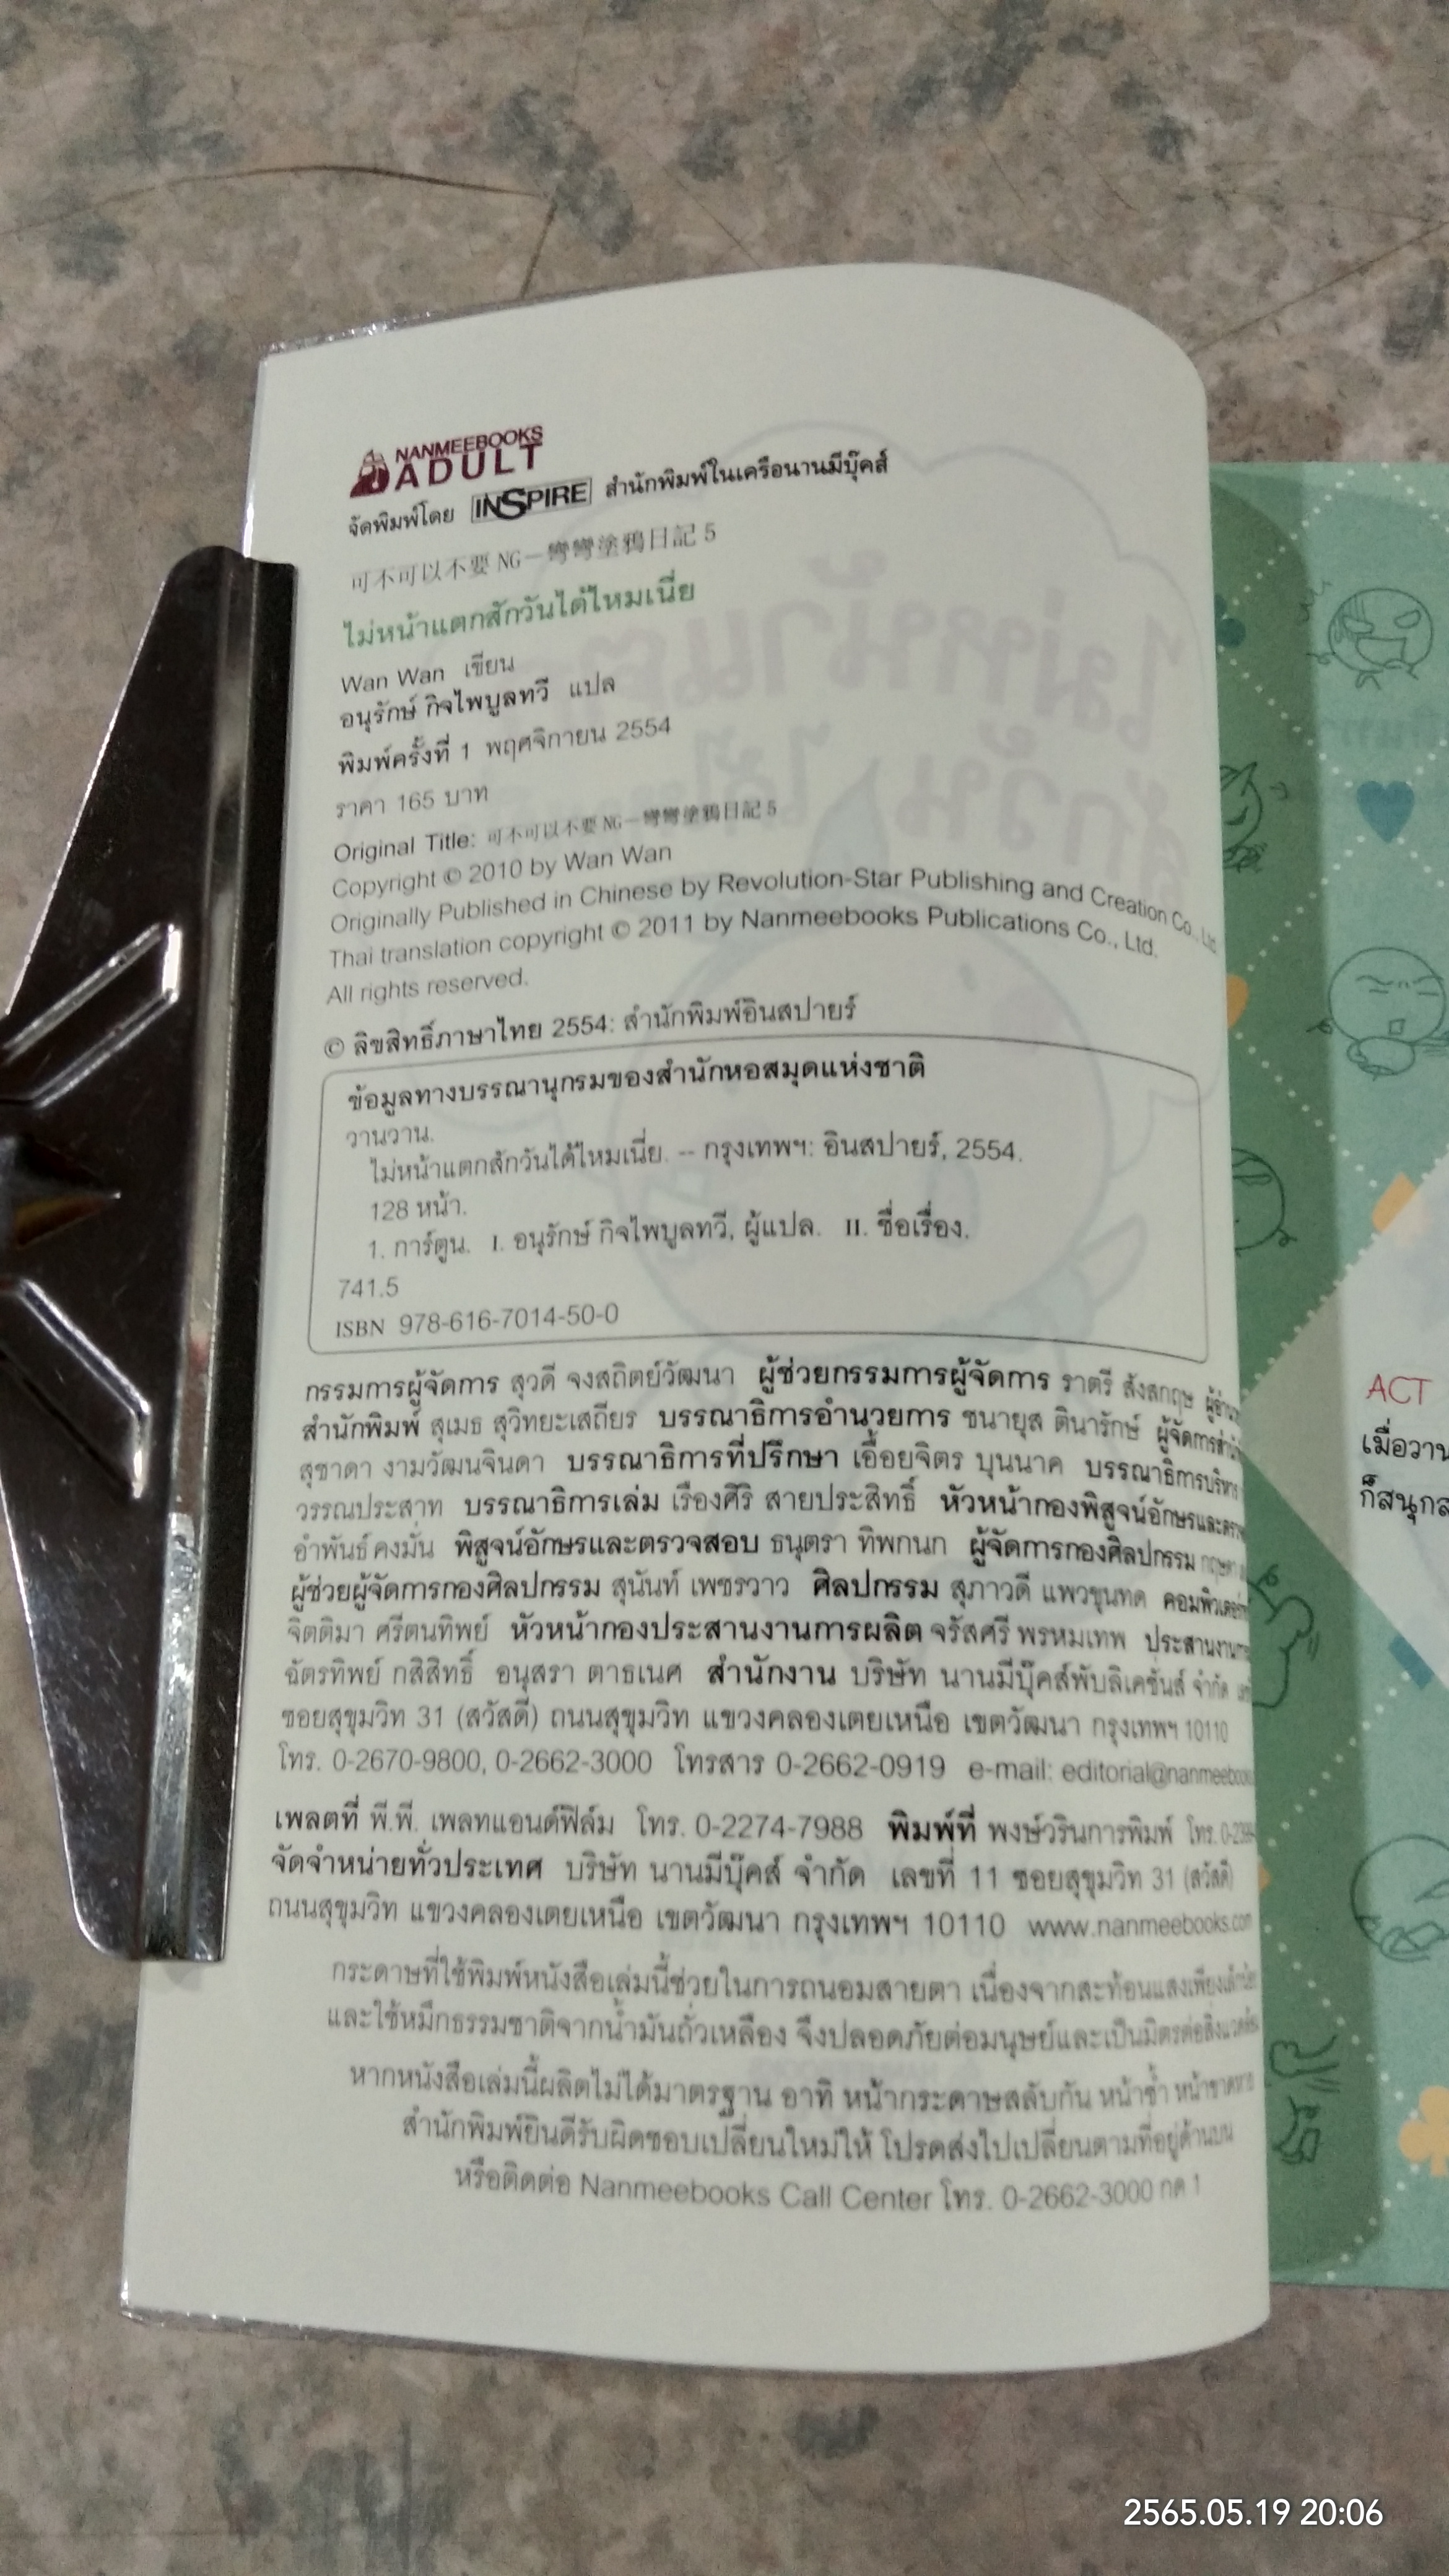 NANMEEBOOKS
ADULT
จัดพิมพ์โดย INSPIRE สำนักพิมพ์ในเครือนานมีบุ๊คส์
可不可以不要 NG－彎彎塗鴉日記 5
ไม่หน้าแตกสักวันได้ไหมเนี่ย
Wan Wan เขียน
อนุรักษ์ กิจไพบูลทวี แปล
พิมพ์ครั้งที่ 1 พฤศจิกายน 2554
ราคา 165 บาท
Original Title: 可不可以不要 NG－彎彎塗鴉日記 5
Copyright © 2010 by Wan Wan
Originally Published in Chinese by Revolution-Star Publishing and Creation Co., Ltd.
Thai translation copyright © 2011 by Nanmeebooks Publications Co., Ltd.
All rights reserved.
© ลิขสิทธิ์ภาษาไทย 2554: สำนักพิมพ์อินสปายร์
ข้อมูลทางบรรณานุกรมของสำนักหอสมุดแห่งชาติ
วานวาน.
ไม่หน้าแตกสักวันได้ไหมเนี่ย. -- กรุงเทพฯ: อินสปายร์, 2554.
128 หน้า.
1. การ์ตูน. I. อนุรักษ์ กิจไพบูลทวี, ผู้แปล. II. ชื่อเรื่อง.
741.5
ISBN 978-616-7014-50-0
กรรมการผู้จัดการ สุวดี จงสถิตย์วัฒนา ผู้ช่วยกรรมการผู้จัดการ ราตรี สังสกฤษ
สำนักพิมพ์ สุเมธ สุวิทยะเสถียร บรรณาธิการอำนวยการ ชนายุส ตินารักษ์
สุชาดา งามวัฒนจินดา บรรณาธิการที่ปรึกษา เอื้อยจิตร บุนนาค บรรณาธิการบริหาร
วรรณประสาท บรรณาธิการเล่ม เรืองศิริ สายประสิทธิ์ หัวหน้ากองพิสูจน์อักษรและตรวจ
อำพันธ์ คงมั่น พิสูจน์อักษรและตรวจสอบ ธนุตรา ทิพกนก ผู้จัดการกองศิลปกรรม
ผู้ช่วยผู้จัดการกองศิลปกรรม สุนันท์ เพชรวาว ศิลปกรรม สุภาวดี แพวขุนทด
จิตติมา ศรีตนทิพย์ หัวหน้ากองประสานงานการผลิต จรัสศรี พรหมเทพ
ฉัตรทิพย์ กสิสิทธิ์ อนุสรา ตาธเนศ สำนักงาน บริษัท นานมีบุ๊คส์พับลิเคชันส์ จำกัด
ซอยสุขุมวิท 31 (สวัสดี) ถนนสุขุมวิท แขวงคลองเตยเหนือ เขตวัฒนา กรุงเทพฯ 10110
โทร. 0-2670-9800, 0-2662-3000 โทรสาร 0-2662-0919 e-mail: editorial@nanmeebooks
เพลตที่ พี.พี. เพลทแอนด์ฟิล์ม โทร. 0-2274-7988 พิมพ์ที่ พงษ์วรินการพิมพ์ โทร.
จัดจำหน่ายทั่วประเทศ บริษัท นานมีบุ๊คส์ จำกัด เลขที่ 11 ซอยสุขุมวิท 31 (สวัสดี)
ถนนสุขุมวิท แขวงคลองเตยเหนือ เขตวัฒนา กรุงเทพฯ 10110 www.nanmeebooks.com
กระดาษที่ใช้พิมพ์หนังสือเล่มนี้ช่วยในการถนอมสายตา เนื่องจากสะท้อนแสงเพียงเล็กน้อย
และใช้หมึกธรรมชาติจากน้ำมันถั่วเหลือง จึงปลอดภัยต่อมนุษย์และเป็นมิตรต่อสิ่งแวดล้อม
หากหนังสือเล่มนี้ผลิตไม่ได้มาตรฐาน อาทิ หน้ากระดาษสลับกัน หน้าซ้ำ หน้าขาดหาย
สำนักพิมพ์ยินดีรับผิดชอบเปลี่ยนใหม่ให้ โปรดส่งไปเปลี่ยนตามที่อยู่ด้านบน
หรือติดต่อ Nanmeebooks Call Center โทร. 0-2662-3000 กด 1
ACT
เมื่อวาน
ก็สนุกส
2565.05.19 20:06